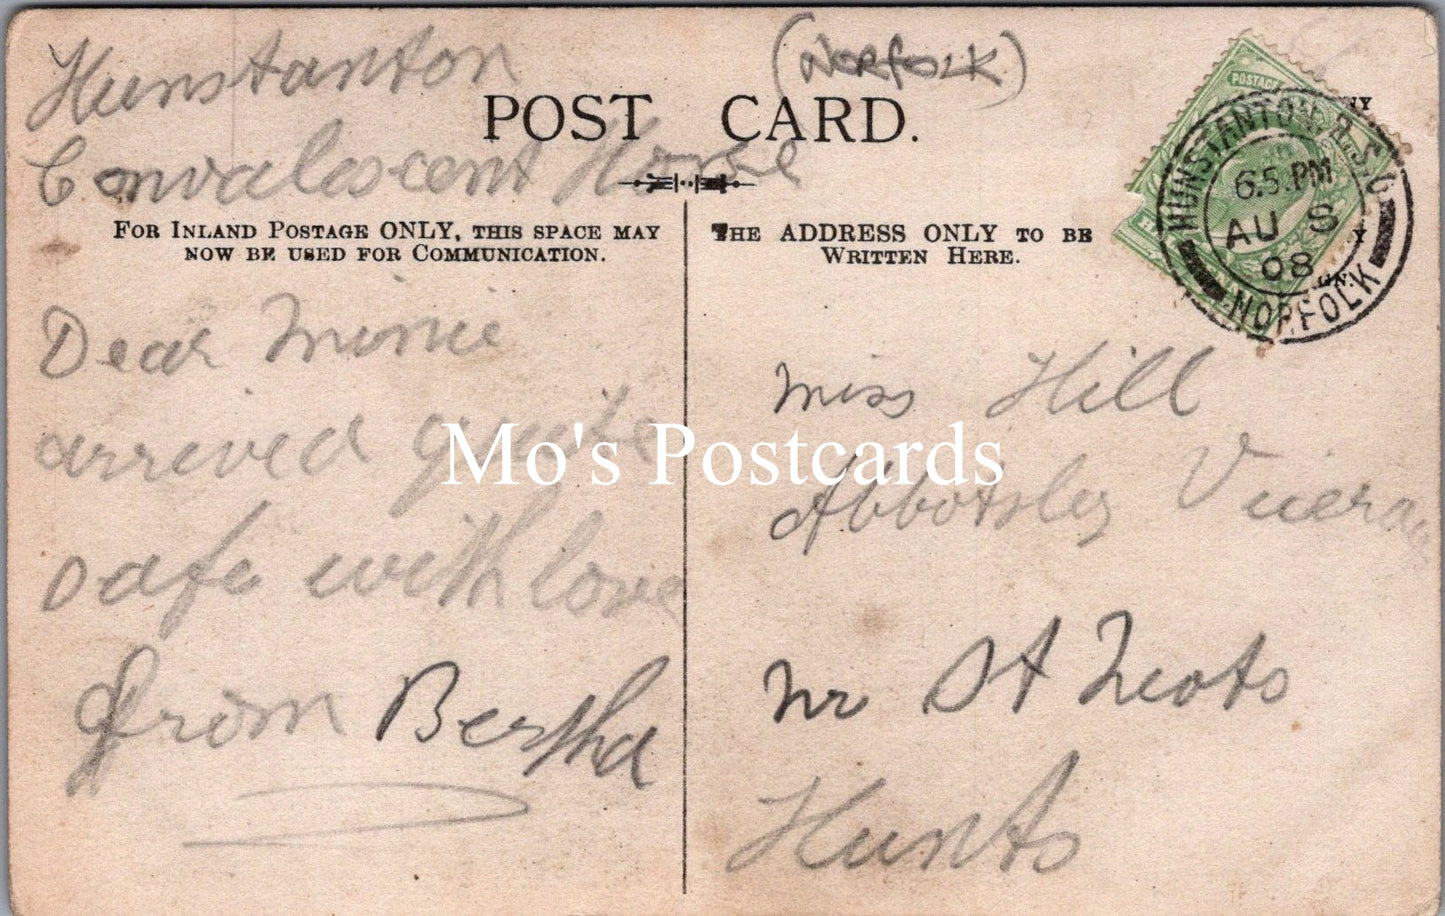 Hunstanton
(Norfolk)
Convalescent Home
POST CARD.
FOR INLAND POSTAGE ONLY, THIS SPACE MAY
NOW BE USED FOR COMMUNICATION.
THE ADDRESS ONLY TO BE
WRITTEN HERE.
POSTAGE
HUNSTANTON R.S.O.
6.5.PM
AU 8
08
NORFOLK
Dear Minie
arrived quite
safe with love
from Bertha
Miss Hill
Abbotsley
nr St Neots
Hunts
Mo's Postcards